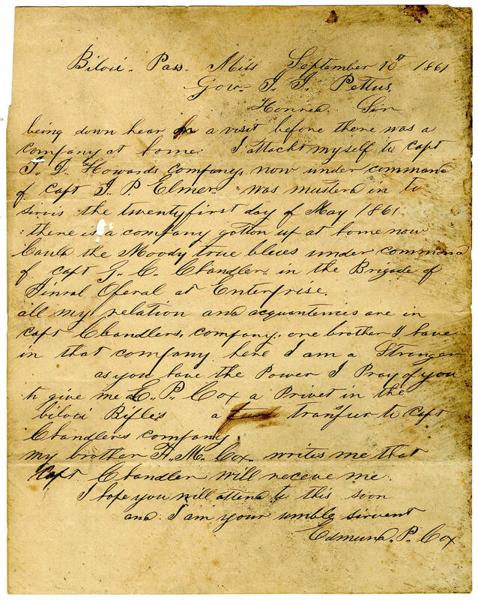 Biloxi Pass. Miss September 10th 1861
Gov. J. J. Pettus,
Honred. Sir
being down hear on a visit before there was a
company at home. I attacht myself to Capt
T. G. Howards Company, now under command
of Capt J. P Elmer. was musterd in to
sirvis the twentyfirst day of May 1861.
there is a company gotton up at home now
Caula the Moody true blues under command
of capt G. C. Chandlers in the Brigade of
Ginral Oferal at Enterprise.
all my relation and acquantences are in
capt Chandlers, company, one brother I have
in that company here I am a Stranger
as you have the Power I Pray of you
to give me E. P. Cox a Privet in the
biloxi Rifles a tranfur to Capt
Chandlers company
my brother H. M. Cox. writes me that
Capt Chandler will receve me.
I hope you will attend to this soon
and I am your umbly sirvent
Edmund. P. Cox